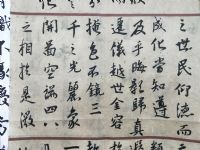 之世民仰德而
成化當知遵
及乎晦影歸真
遷儀越世金容
掩色不鏡三
千之光麗象
開圖空端四八
之相於是微